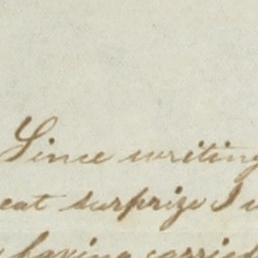 Since writing
eat surprize I
having carried